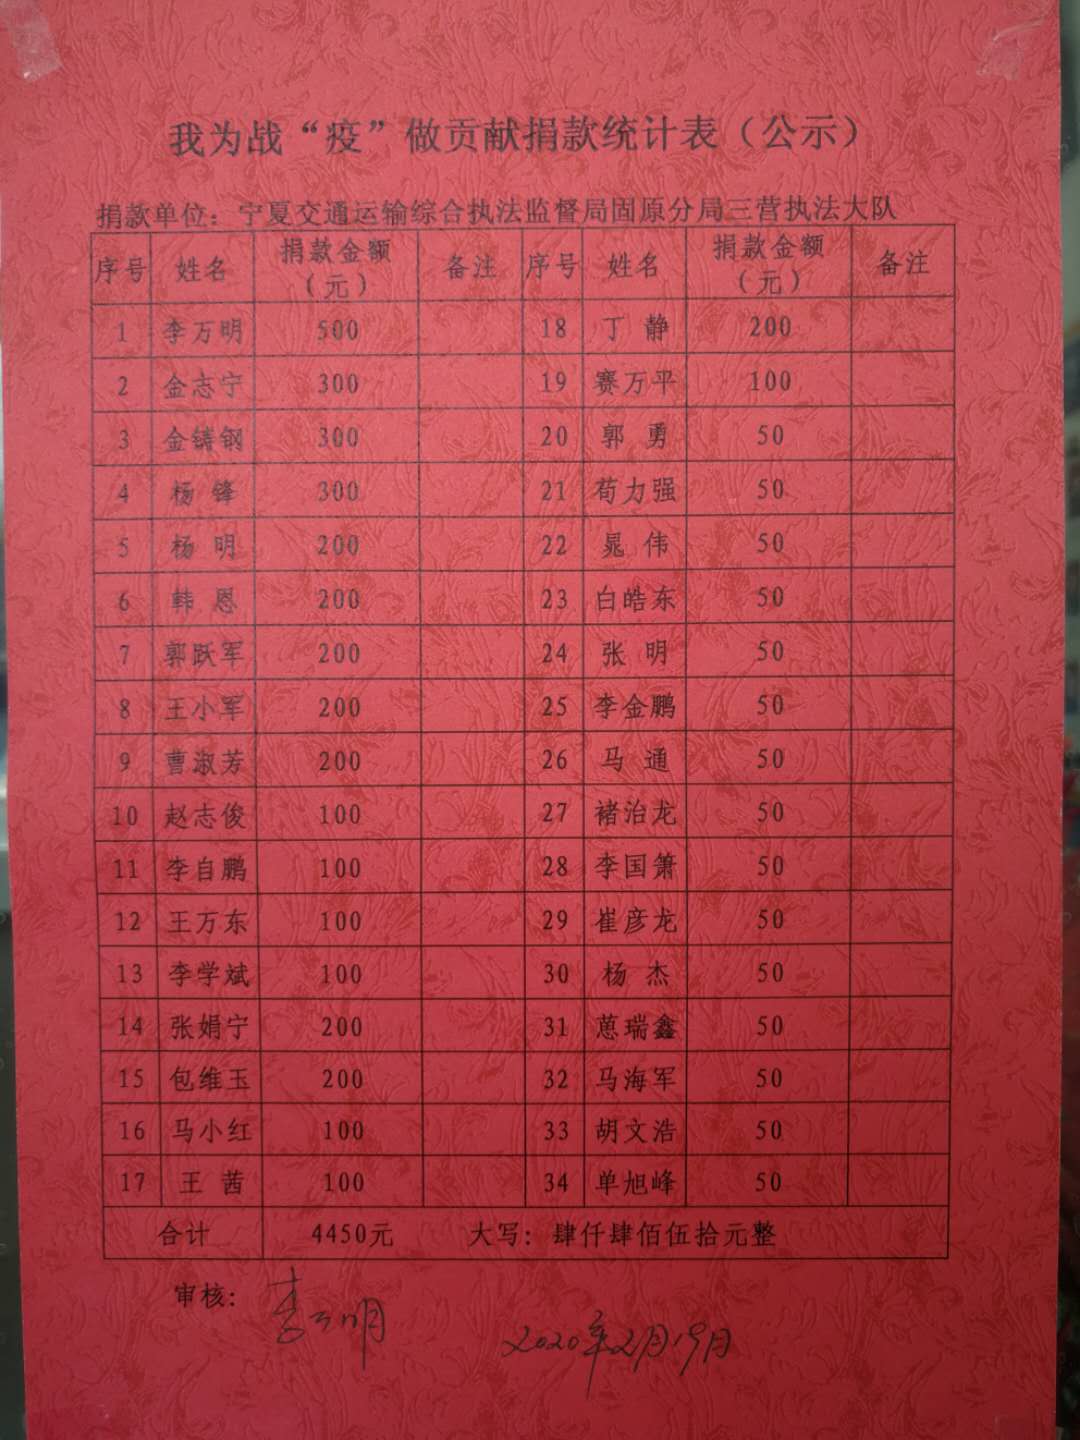 我为战“疫”做贡献捐款统计表（公示）
捐款单位：宁夏交通运输综合执法监督局固原分局三营执法大队
序号 姓名 捐款金额（元） 备注 序号 姓名 捐款金额（元） 备注
1 李万明 500 18 丁静 200
2 金志宁 300 19 赛万平 100
3 金铸钢 300 20 郭勇 50
4 杨锋 300 21 荀力强 50
5 杨明 200 22 晁伟 50
6 韩恩 200 23 白皓东 50
7 郭跃军 200 24 张明 50
8 王小军 200 25 李金鹏 50
9 曹淑芳 200 26 马通 50
10 赵志俊 100 27 褚治龙 50
11 李自鹏 100 28 李国箫 50
12 王万东 100 29 崔彦龙 50
13 李学斌 100 30 杨杰 50
14 张娟宁 200 31 蒽瑞鑫 50
15 包维玉 200 32 马海军 50
16 马小红 100 33 胡文浩 50
17 王茜 100 34 单旭峰 50
合计 4450元 大写：肆仟肆佰伍拾元整
审核：李万明
2020年2月19日